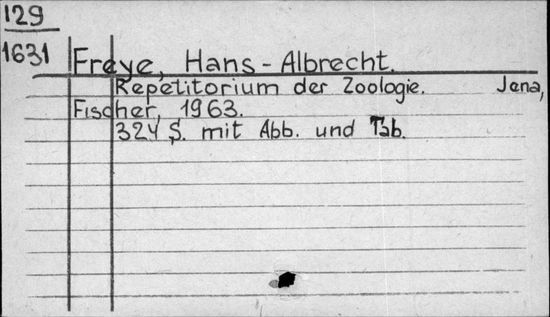 129
1631 Freye, Hans-Albrecht.
Repetitorium der Zoologie. Jena,
Fischer, 1963.
324 S. mit Abb. und Tab.